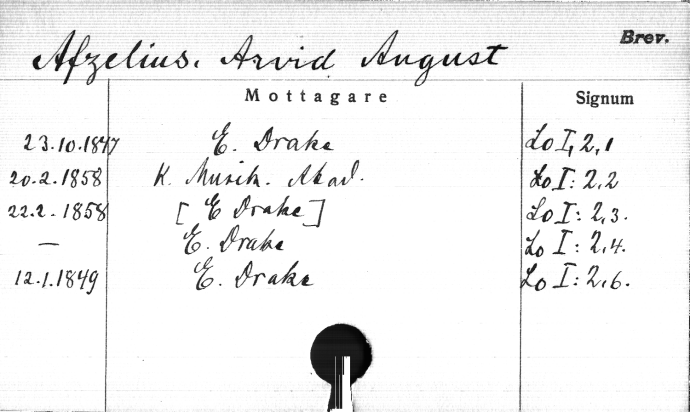 Afzelius, Arvid August Brev.
Mottagare Signum
23.10.1847 E. Drake Lo I, 2,1
20.2.1858 K. Musik. Akad. Lo I: 2,2
22.2.1858 [E Drake] Lo I: 2,3.
— E. Drake Lo I: 2,4.
12.1.1849 E. Drake Lo I: 2,6.